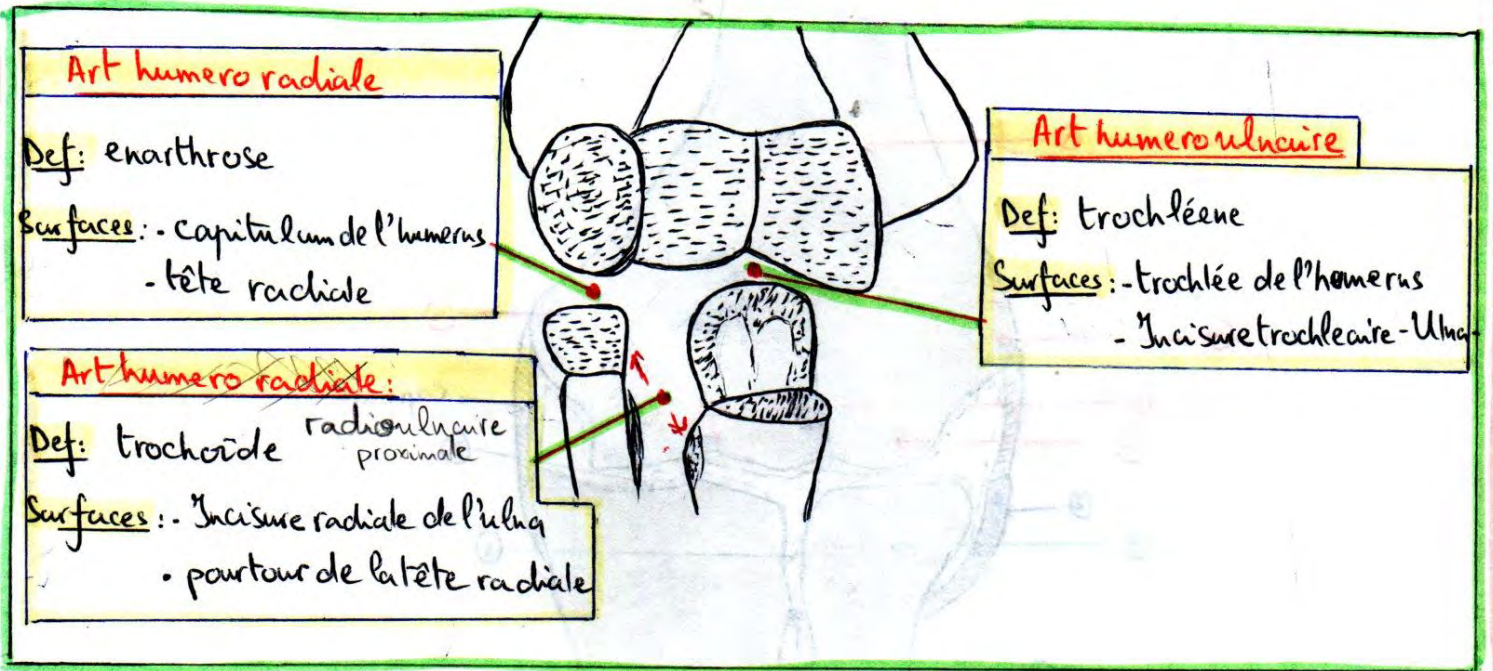 Art humero radiale
Def: enarthrose
Surfaces: - capitulum de l'humerus
- tête radiale
Art humero radiale:
radioulnaire
proximale
Def: trochoïde
Surfaces: - Incisure radiale de l'ulna
• pourtour de la tête radiale
Art humero ulnaire
Def: trochléene
Surfaces: - trochlée de l'homerus
- Incisure trochleaire - Ulna -